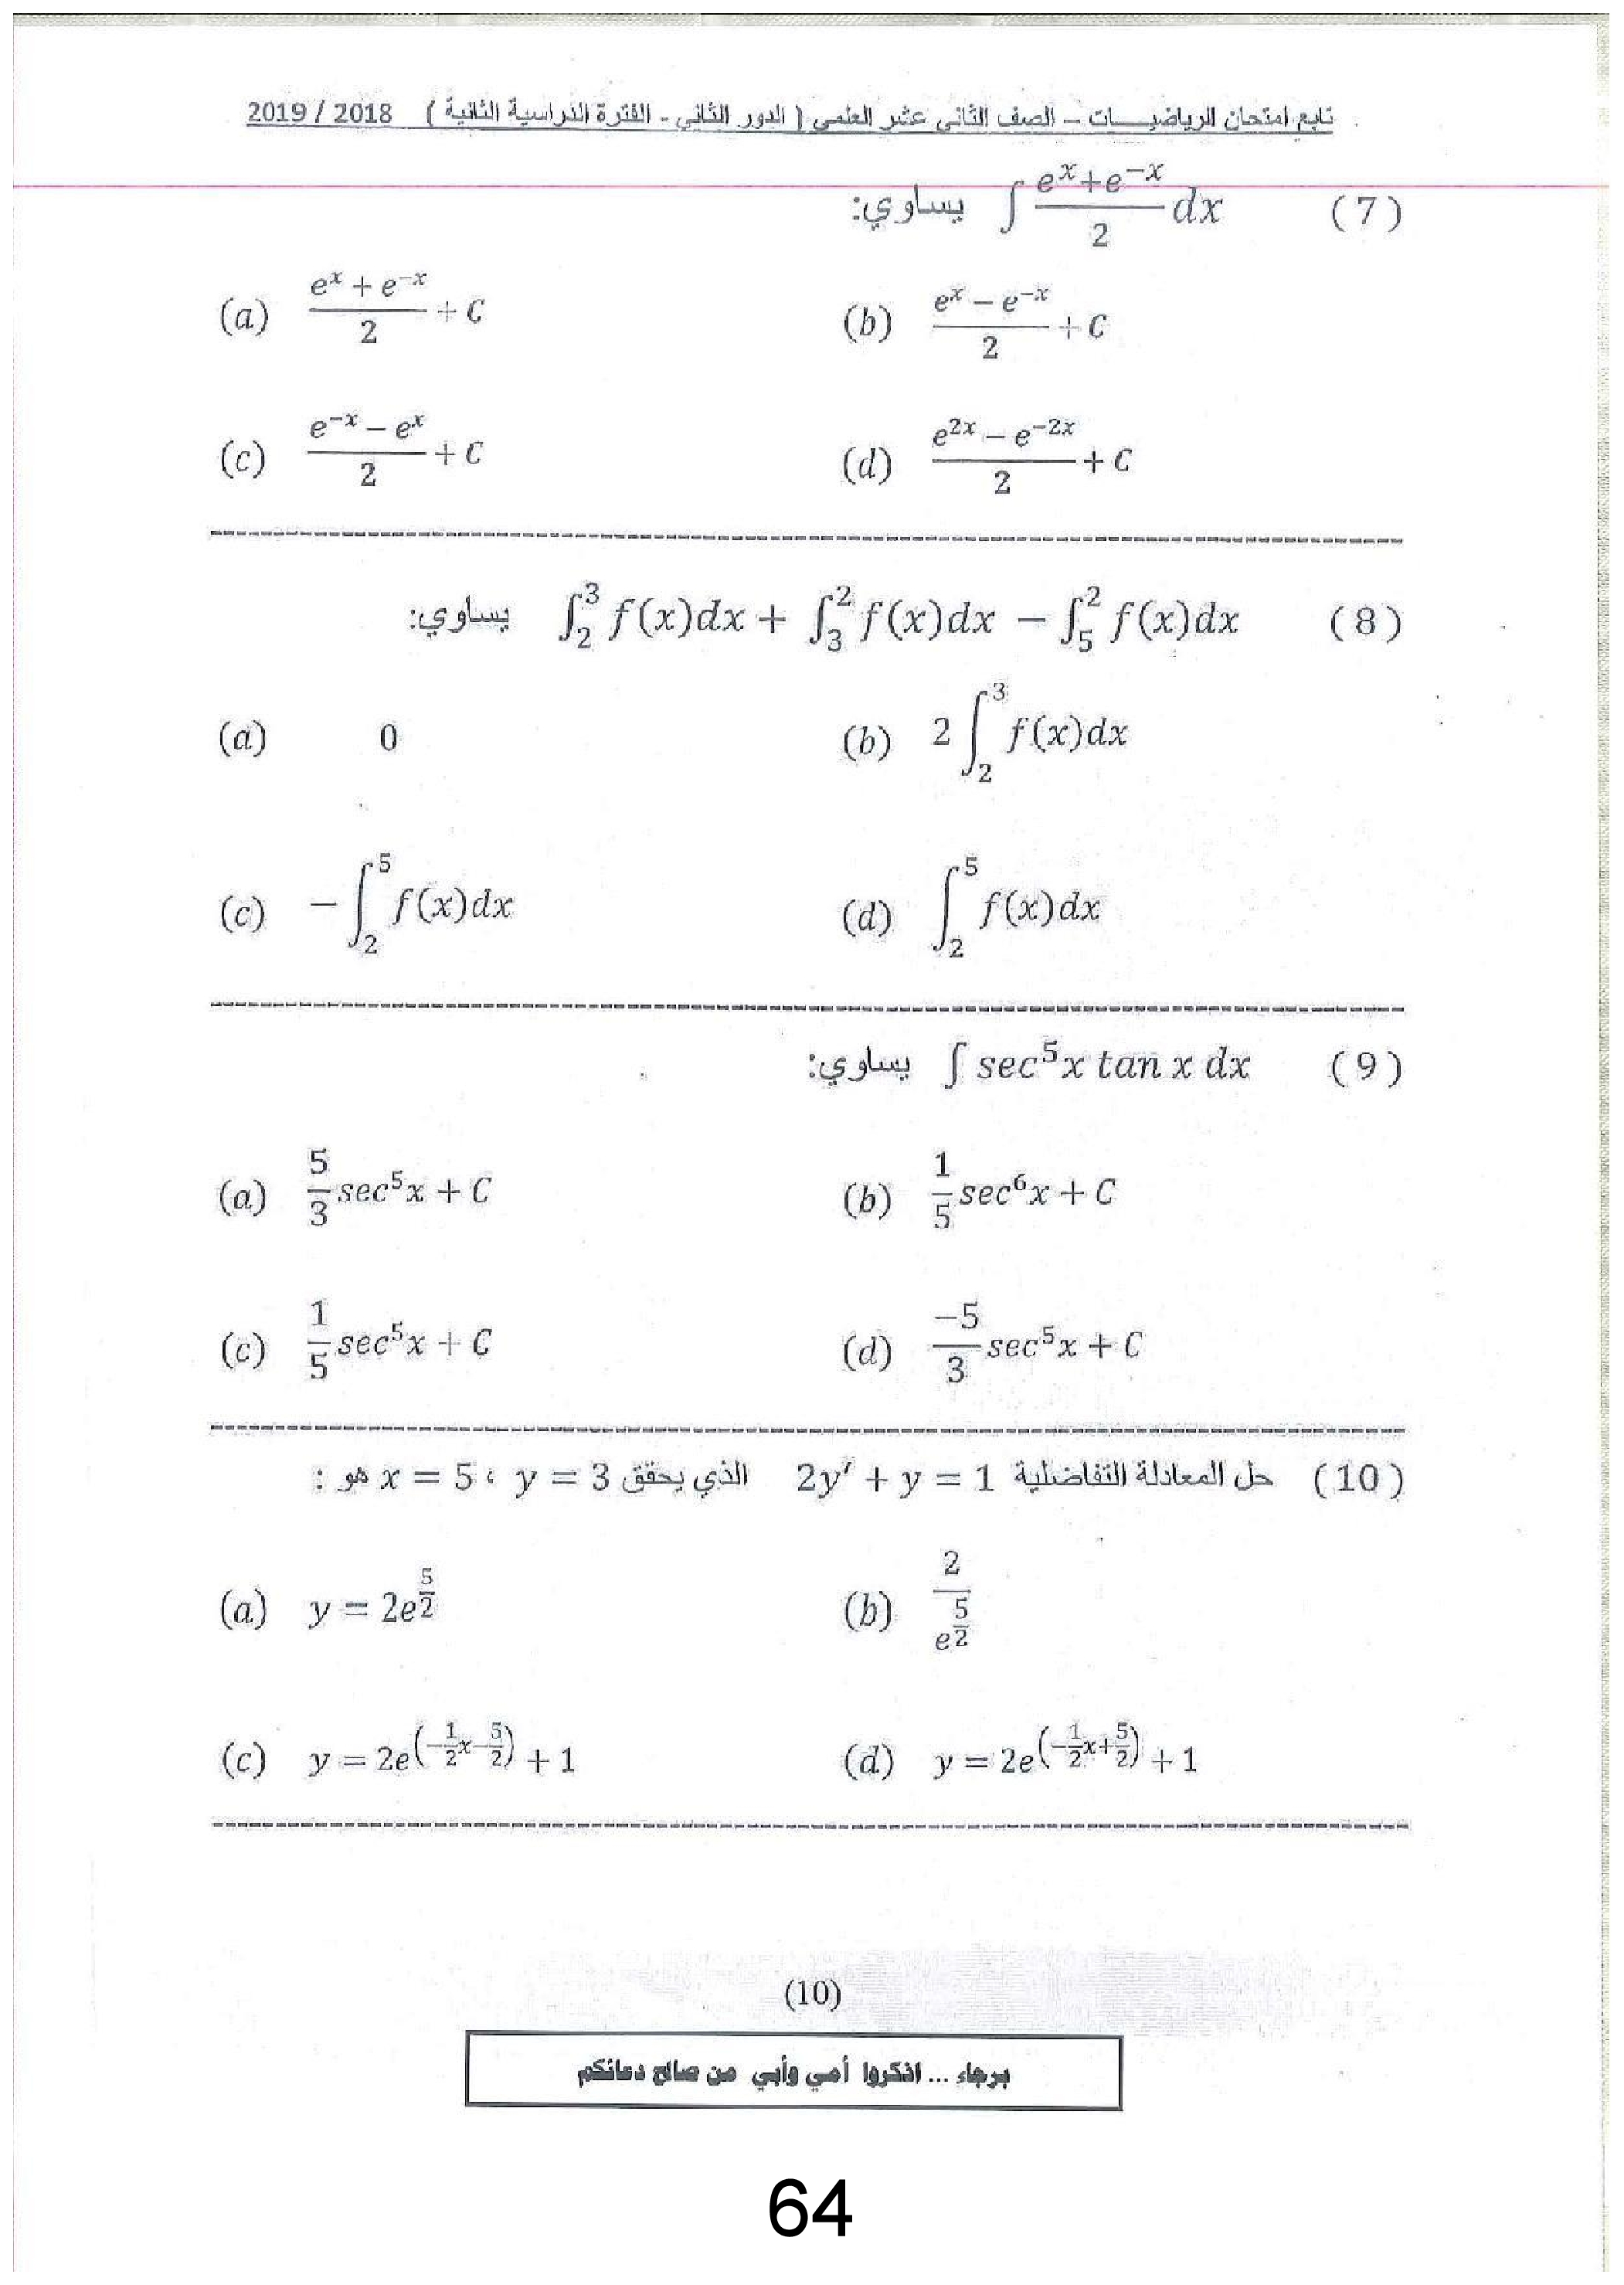 تابع امتحان الرياضيـــات – الصف الثاني عشر العلمي ( الدور الثاني - الفترة الدراسية الثانية ) 2018 / 2019
(7) ∫ (eˣ+e⁻ˣ)/2 dx يساوي:
(a) (eˣ + e⁻ˣ)/2 + C (b) (eˣ − e⁻ˣ)/2 + C
(c) (e⁻ˣ − eˣ)/2 + C (d) (e²ˣ − e⁻²ˣ)/2 + C
(8) ∫₂³ f(x)dx + ∫₃² f(x)dx − ∫₅² f(x)dx يساوي:
(a) 0 (b) 2 ∫₂³ f(x)dx
(c) − ∫₂⁵ f(x)dx (d) ∫₂⁵ f(x)dx
(9) ∫ sec⁵x tan x dx يساوي:
(a) 5/3 sec⁵x + C (b) 1/5 sec⁶x + C
(c) 1/5 sec⁵x + C (d) −5/3 sec⁵x + C
(10) حل المعادلة التفاضلية 2y′ + y = 1 الذي يحقق y = 3 ، x = 5 هو :
(a) y = 2e^(5/2) (b) 2/e^(5/2)
(c) y = 2e^(−1/2x−5/2) + 1 (d) y = 2e^(−1/2x+5/2) + 1
(10)
برجاء ... اذكروا أمي وأبي من صالح دعائكم
64